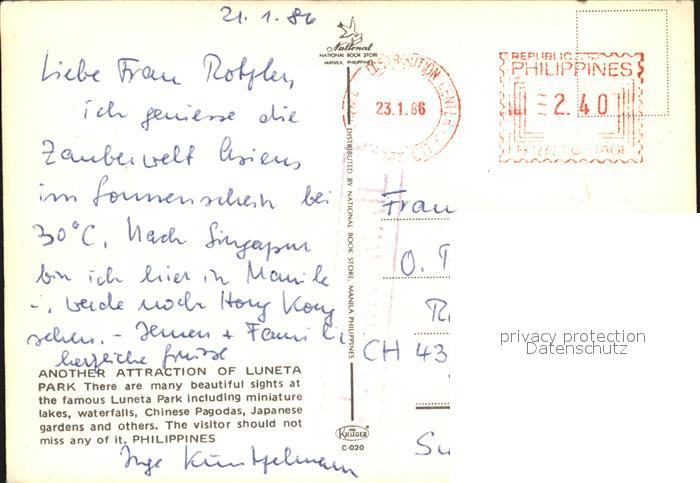 21.1.86
National
NATIONAL BOOK STORE
MANILA, PHILIPPINES
Liebe Frau Rotzler,
ich geniesse die
Zauberwelt Asiens
im Sonnenschein bei
30°C. Nach Singapur
bin ich hier in Manila
werde noch Hong Kong
sehen. - Ihnen + Familie
herzliche Grüsse
ANOTHER ATTRACTION OF LUNETA
PARK There are many beautiful sights at
the famous Luneta Park including miniature
lakes, waterfalls, Chinese Pagodas, Japanese
gardens and others. The visitor should not
miss any of it. PHILIPPINES
Inge Küntzelmann
DISTRIBUTED BY NATIONAL BOOK STORE, MANILA PHILIPPINES
KRUGER
C-020
DISTRIBUTION CENTER
23.1.86
REPUBLIC
PHILIPPINES
2.40
POSTAGE
Frau
O.
CH 43
privacy protection
Datenschutz